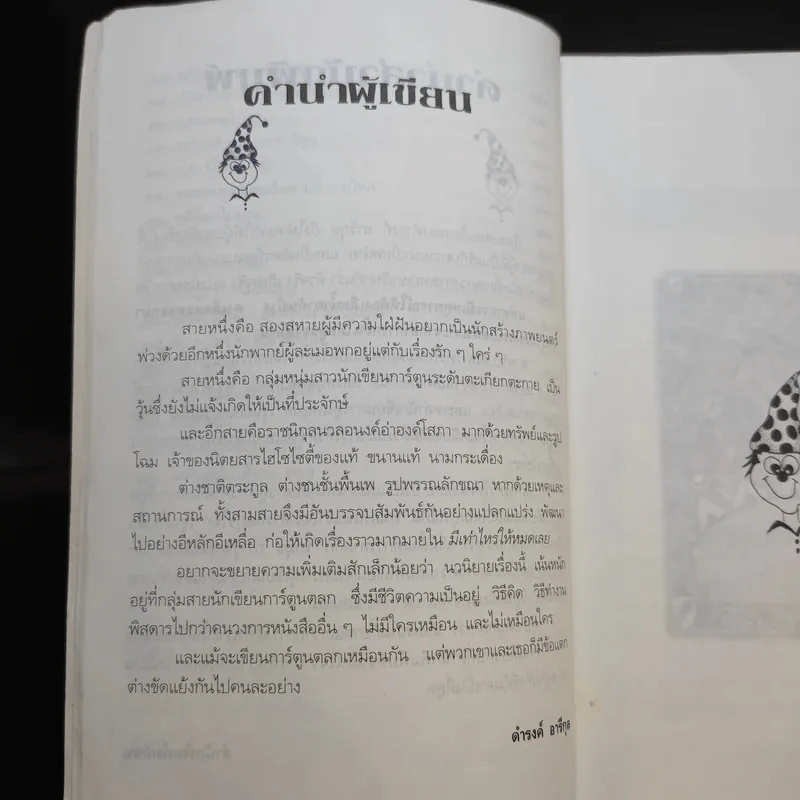 คำนำผู้เขียน
สายหนึ่งคือ สองสหายผู้มีความใฝ่ฝันอยากเป็นนักสร้างภาพยนตร์
พ่วงด้วยอีกหนึ่งนักพากย์ผู้ละเมอพกอยู่แต่กับเรื่องรัก ๆ ใคร่ ๆ
สายหนึ่งคือ กลุ่มหนุ่มสาวนักเขียนการ์ตูนระดับตะเกียกตะกาย เป็น
วุ้นซึ่งยังไม่แจ้งเกิดให้เป็นที่ประจักษ์
และอีกสายคือราชนิกุลนวลอนงค์อ่าองค์โสภา มากด้วยทรัพย์และรูป
โฉม เจ้าของนิตยสารไฮโซไซตี้ของแท้ ขนานแท้ นามกระเดื่อง
ต่างชาติตระกูล ต่างชนชั้นพื้นเพ รูปพรรณลักขณา หากด้วยเหตุและ
สถานการณ์ ทั้งสามสายจึงมีอันบรรจบสัมพันธ์กันอย่างแปลกแปร่ง พัฒนา
ไปอย่างอีหลักอีเหลื่อ ก่อให้เกิดเรื่องราวมากมายใน มีเท่าไหร่ให้หมดเลย
อยากจะขยายความเพิ่มเติมสักเล็กน้อยว่า นวนิยายเรื่องนี้ เน้นหนัก
อยู่ที่กลุ่มสายนักเขียนการ์ตูนตลก ซึ่งมีชีวิตความเป็นอยู่ วิธีคิด วิธีทำงาน
พิสดารไปกว่าคนวงการหนังสืออื่น ๆ ไม่มีใครเหมือน และไม่เหมือนใคร
และแม้จะเขียนการ์ตูนตลกเหมือนกัน แต่พวกเขาและเธอก็มีข้อแตก
ต่างขัดแย้งกันไปคนละอย่าง
ดำรงค์ อารีกุล